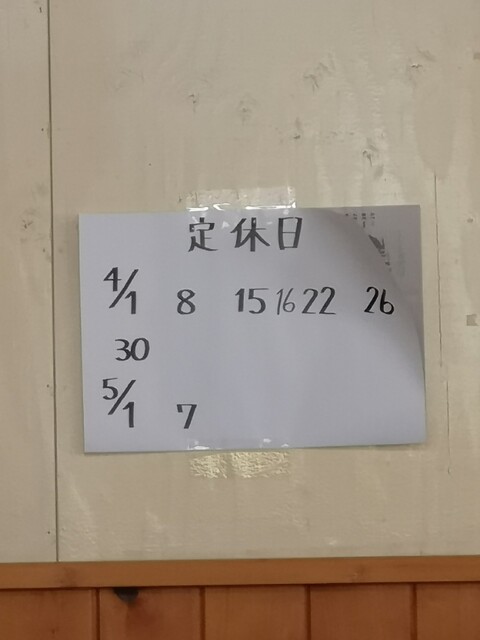 定休日
4/1 8 15 16 22 26
30
5/1 7